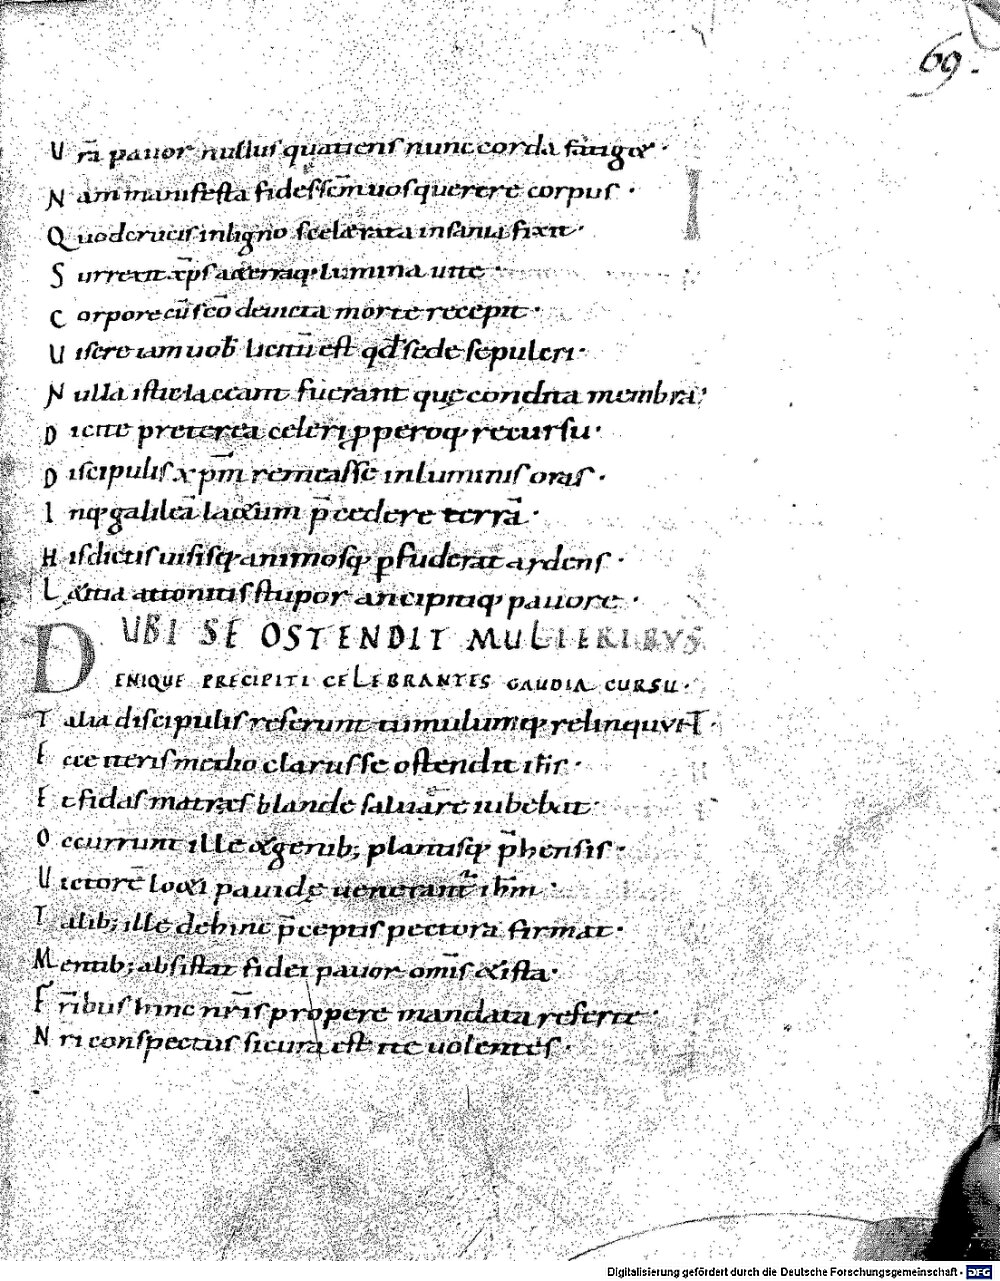 69.
Ura pauor nullus quatiens nunc corda fatig& ·
Nam manifesta fides scm̄ uos querere corpus ·
Quod crucis in ligno scelærata insania fixit ·
Surrexit xp̄s aeternaq; lumina uite ·
Corpore cū sc̄o deuicta morte recepit ·
Uisere iam uob licitū est qđ sede sepulcri ·
Nulla istic iaceant fuerant quę condita membra ·
Dicite preterea celeri ꝓperoq; recursu ·
Discipulis xp̄m remeasse in luminis oras ·
Inq; galileā laetum p̄cedere terrā ·
His dictis uisisq; animosq; ꝑfuderat ardens ·
L&itia attonitis stupor ancipitiq; pauore ·
UBI SE OSTENDIT MULIERIBUS
DENIQUE PRECIPITI CELEBRANTES GAUDIA CURSU ·
Talia discipulis referunt tumulumq; relinquunt ·
Ecce iteris medio clarus se ostendit ih̄s ·
Et fidas matres blande saluare iubebat ·
Occurrunt ille &genib; plantisq; p̄hensis ·
Uictorē lo&i pauidę uenerant ih̄m ·
Talib; ille dehinc p̄ceptis pectora firmat ·
Mentib; absistat fidei pauor om̄is &ista ·
Fr̄ibus hinc nr̄is propere mandata referte ·
Nr̄i conspectus si cura est ite uolentes ·
Digitalisierung gefördert durch die Deutsche Forschungsgemeinschaft - DFG